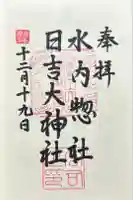 奉拝
水内惣社
日吉大神社
十二月十九日